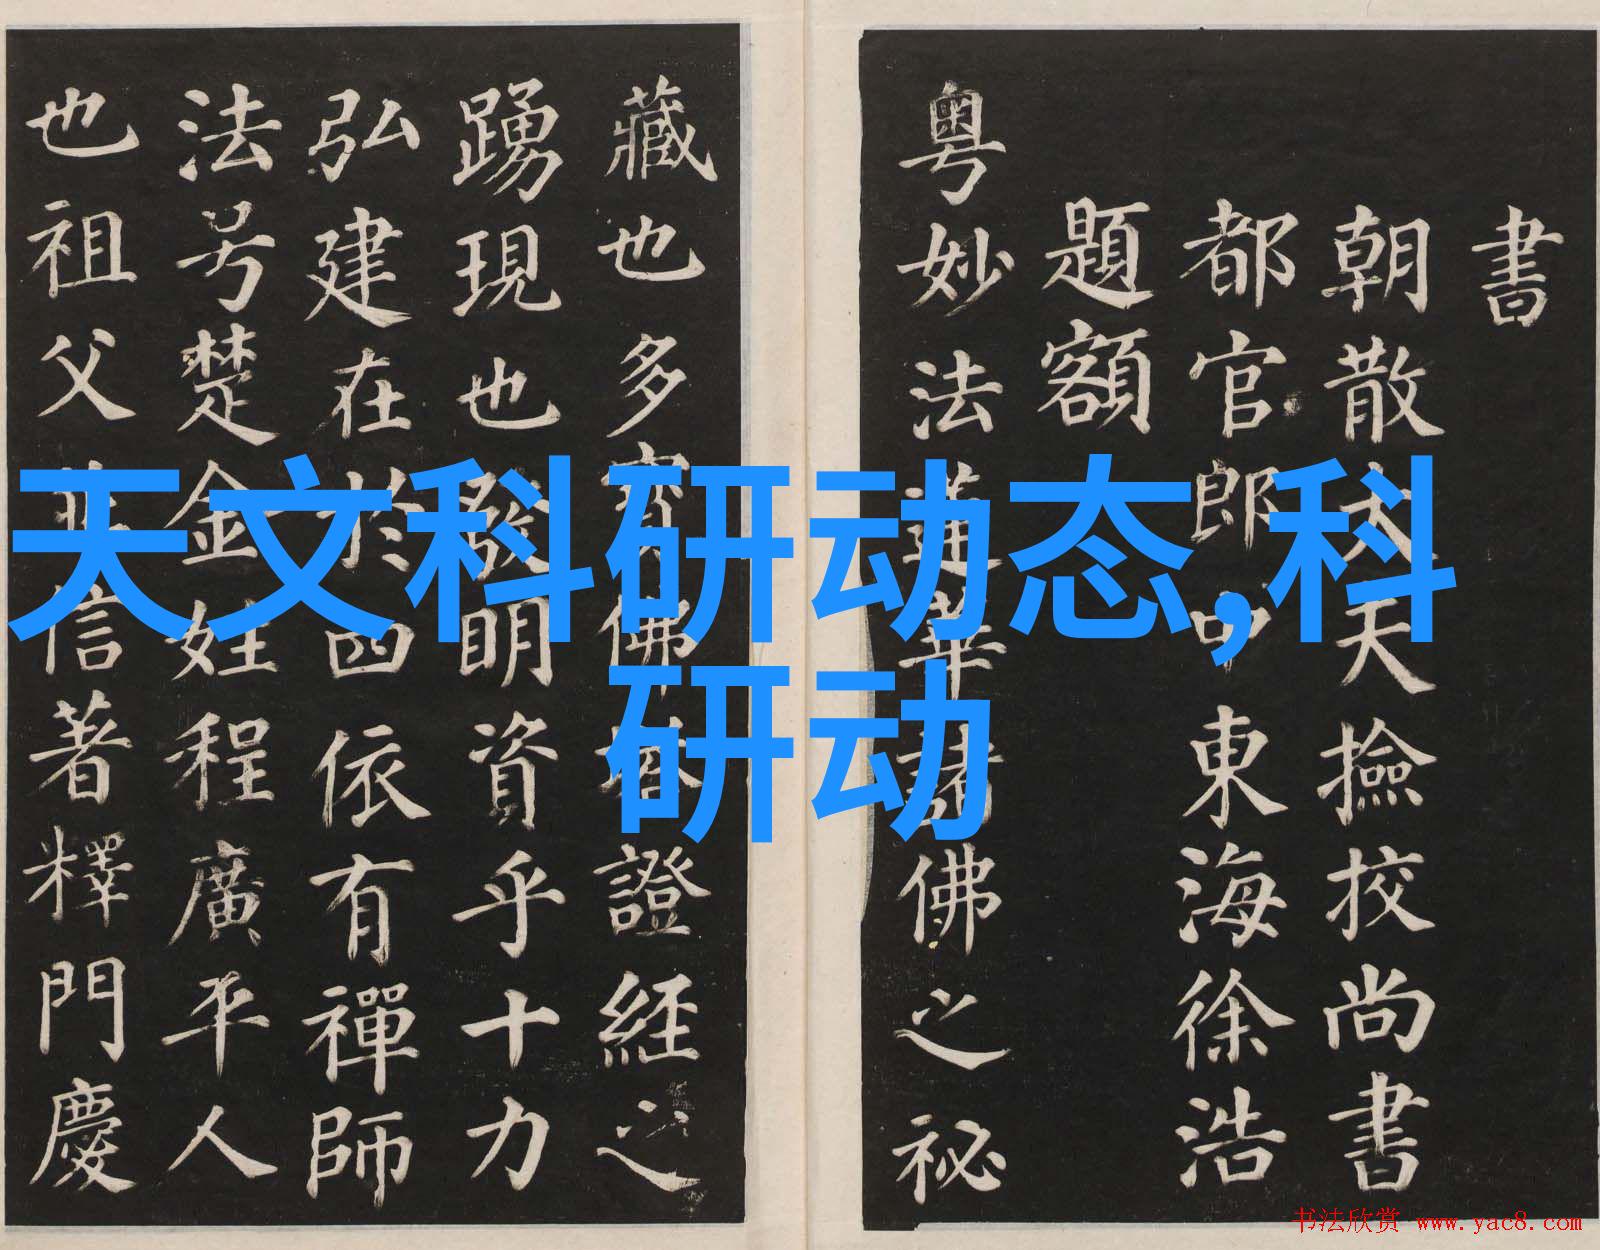 書
朝散大夫撿挍尚書
都官郎中東海徐浩
題額
粵妙法蓮華諸佛之祕
藏也多寶佛塔證經之
踴現也發明資乎十力
弘建在於四依有禪師
法号楚金姓程廣平人
也祖父並信著釋門慶
天文科研动态,科
研动
书法欣赏 www.yac8.com